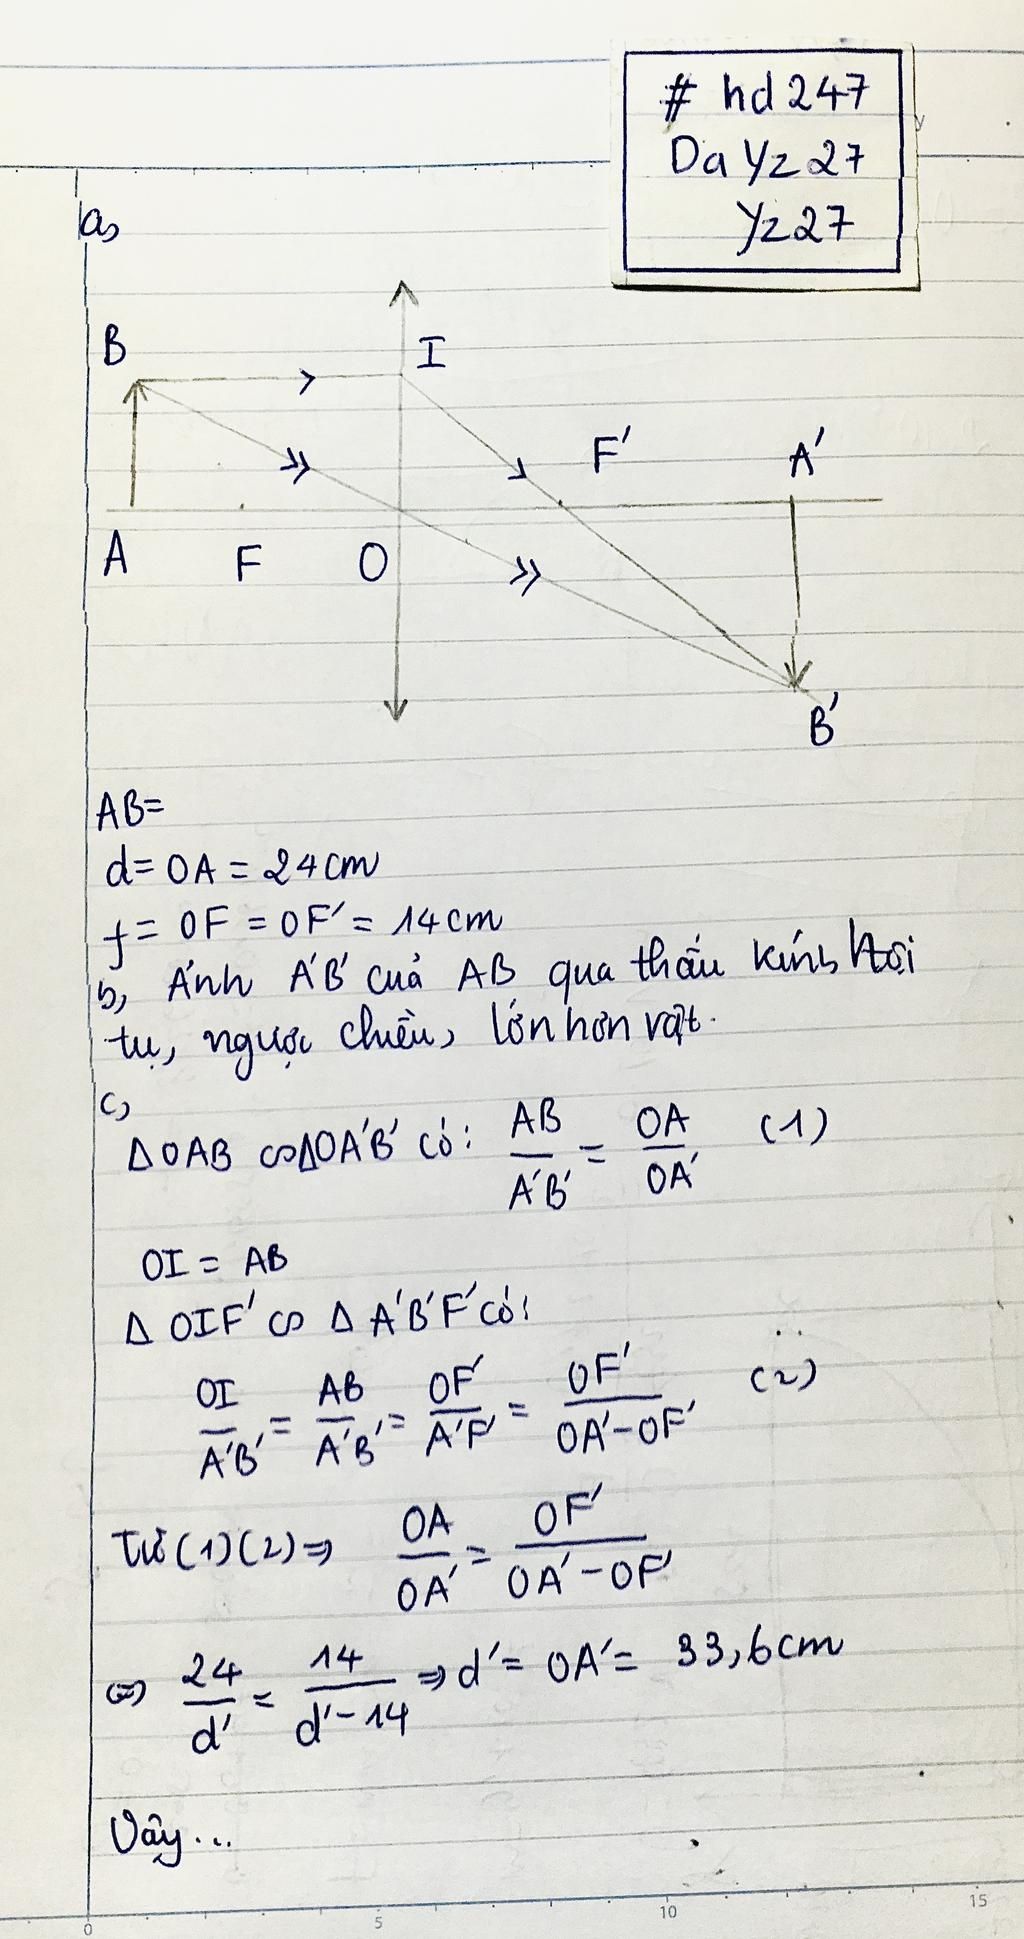 # hd247
Da Yz27
Yz27
a,
B
I
F'
A'
A
F
O
B'
AB=
d= OA = 24cm
f= OF = OF' = 14cm
b, Ảnh A'B' của AB qua thấu kính hội
tụ, ngược chiều, lớn hơn vật.
c,
Δ OAB ∽ ΔOA'B' có: AB/A'B' = OA/OA' (1)
OI = AB
Δ OIF' ∽ Δ A'B'F' có:
OI/A'B' = AB/A'B' = OF'/A'F' = OF'/OA'-OF' (2)
Từ (1)(2) ⇒ OA/OA' = OF'/OA'-OF'
⇔ 24/d' = 14/d'-14 ⇒ d' = OA' = 33,6cm
Vậy...
0 5 10 15